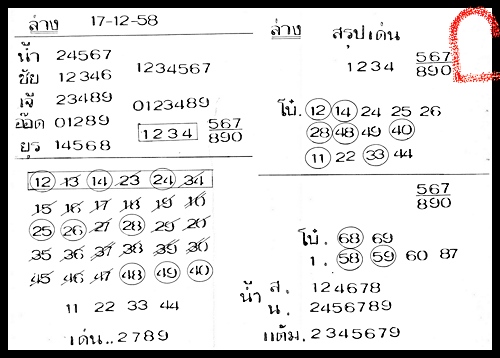 ล่าง 17-12-58
น้ำ 24567
ชัย 12346 1234567
เจ๊ 23489 0123489
อ๊อด 01289 1234 567
ยุร 14568 890
12 13 14 23 24 34
15 16 17 18 19 10
25 26 27 28 29 20
35 36 37 38 39 30
45 46 47 48 49 40
11 22 33 44
เด่น..2789
ล่าง สรุปเด่น
1234 567
890
โป๊. 12 14 24 25 26
28 48 49 40
11 22 33 44
567
890
โป๊. 68 69
1. 58 59 60 87
น้ำ ส. 124678
น. 2456789
แต้ม. 2345679